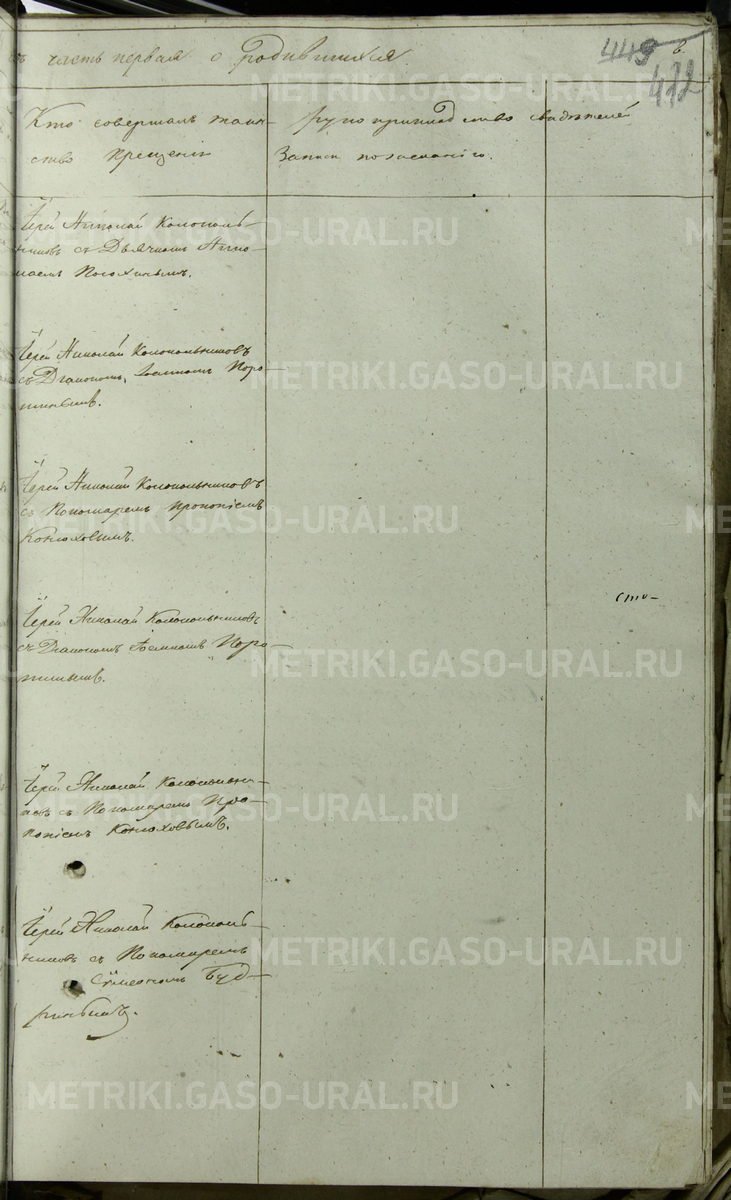 ъ часть первая о родившихся
449 в.
472
Кто совершалъ таин-
ство крещенія
рукоприкладство свидѣтелей
записи по желанію.
Іерей Николай Колоколь-
никовъ съ Дьячкомъ Нико-
лаемъ
Іерей Николай Колокольниковъ
съ Діакономъ, Іоанномъ Коро-
Іерей Николай Колокольниковъ
съ Пономаремъ Прокопіемъ
Конюховымъ.
сто-
Іерей Николай Колокольниковъ
съ Діакономъ Коро-
Іерей Николай Колокольни-
съ Пономаремъ Про-
копіемъ Конюховымъ.
Іерей Николай Колоколь-
никовъ съ Пономаремъ
Сѷмеономъ Буд-
ринымъ.
METRIKI.GASO-URAL.RU